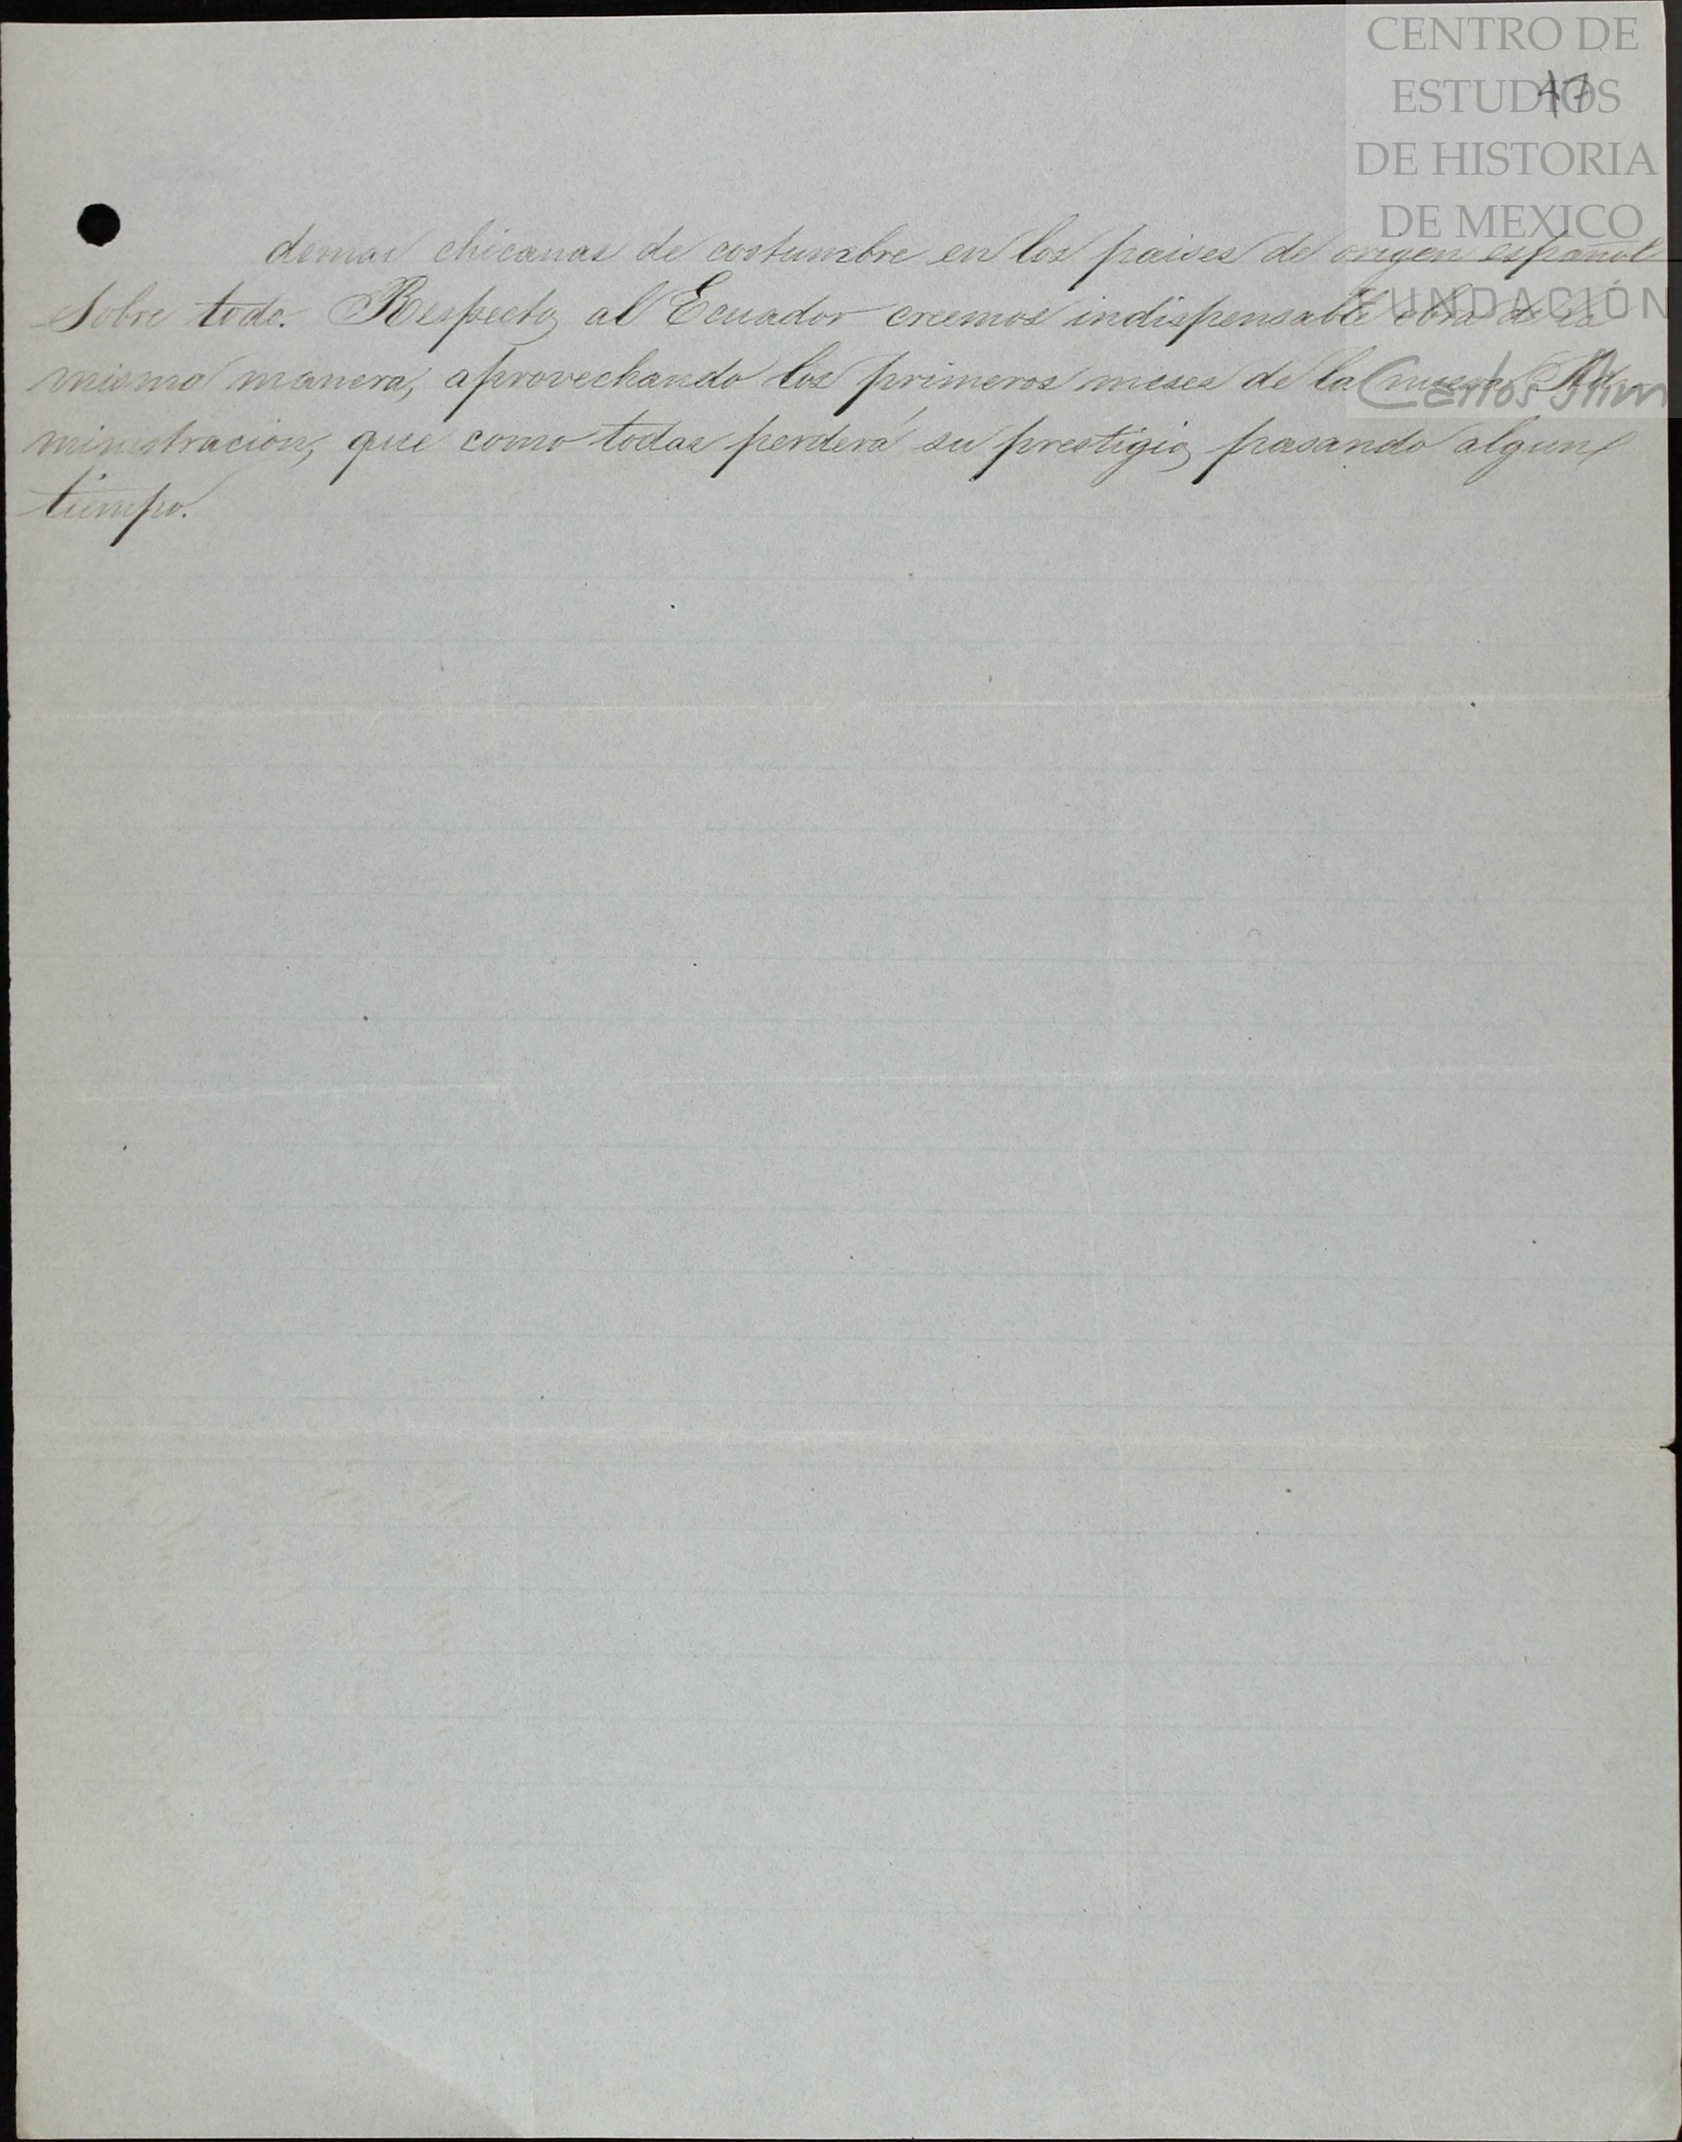 CENTRO DE
ESTUDIOS
DE HISTORIA
DE MEXICO
FUNDACIÓN
Carlos Slim
47
demas chicanas de costumbre en los paises de origen español
sobre todo. Respecto al Ecuador creemos indispensable obra de la
misma manera, aprovechando los primeros meses de la nueva Ad-
ministracion, que como todas perderá su prestigio, pasando algun
tiempo.